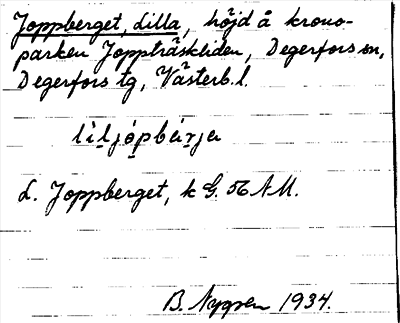 Joppberget, dilla, höjd å krono-
parken Joppträskliden, Degerfors sn,
Degerfors tg, Västerb. l.
lìljópbárja
L. Joppberget, k G. 56 NM.
B. Nygren 1934.